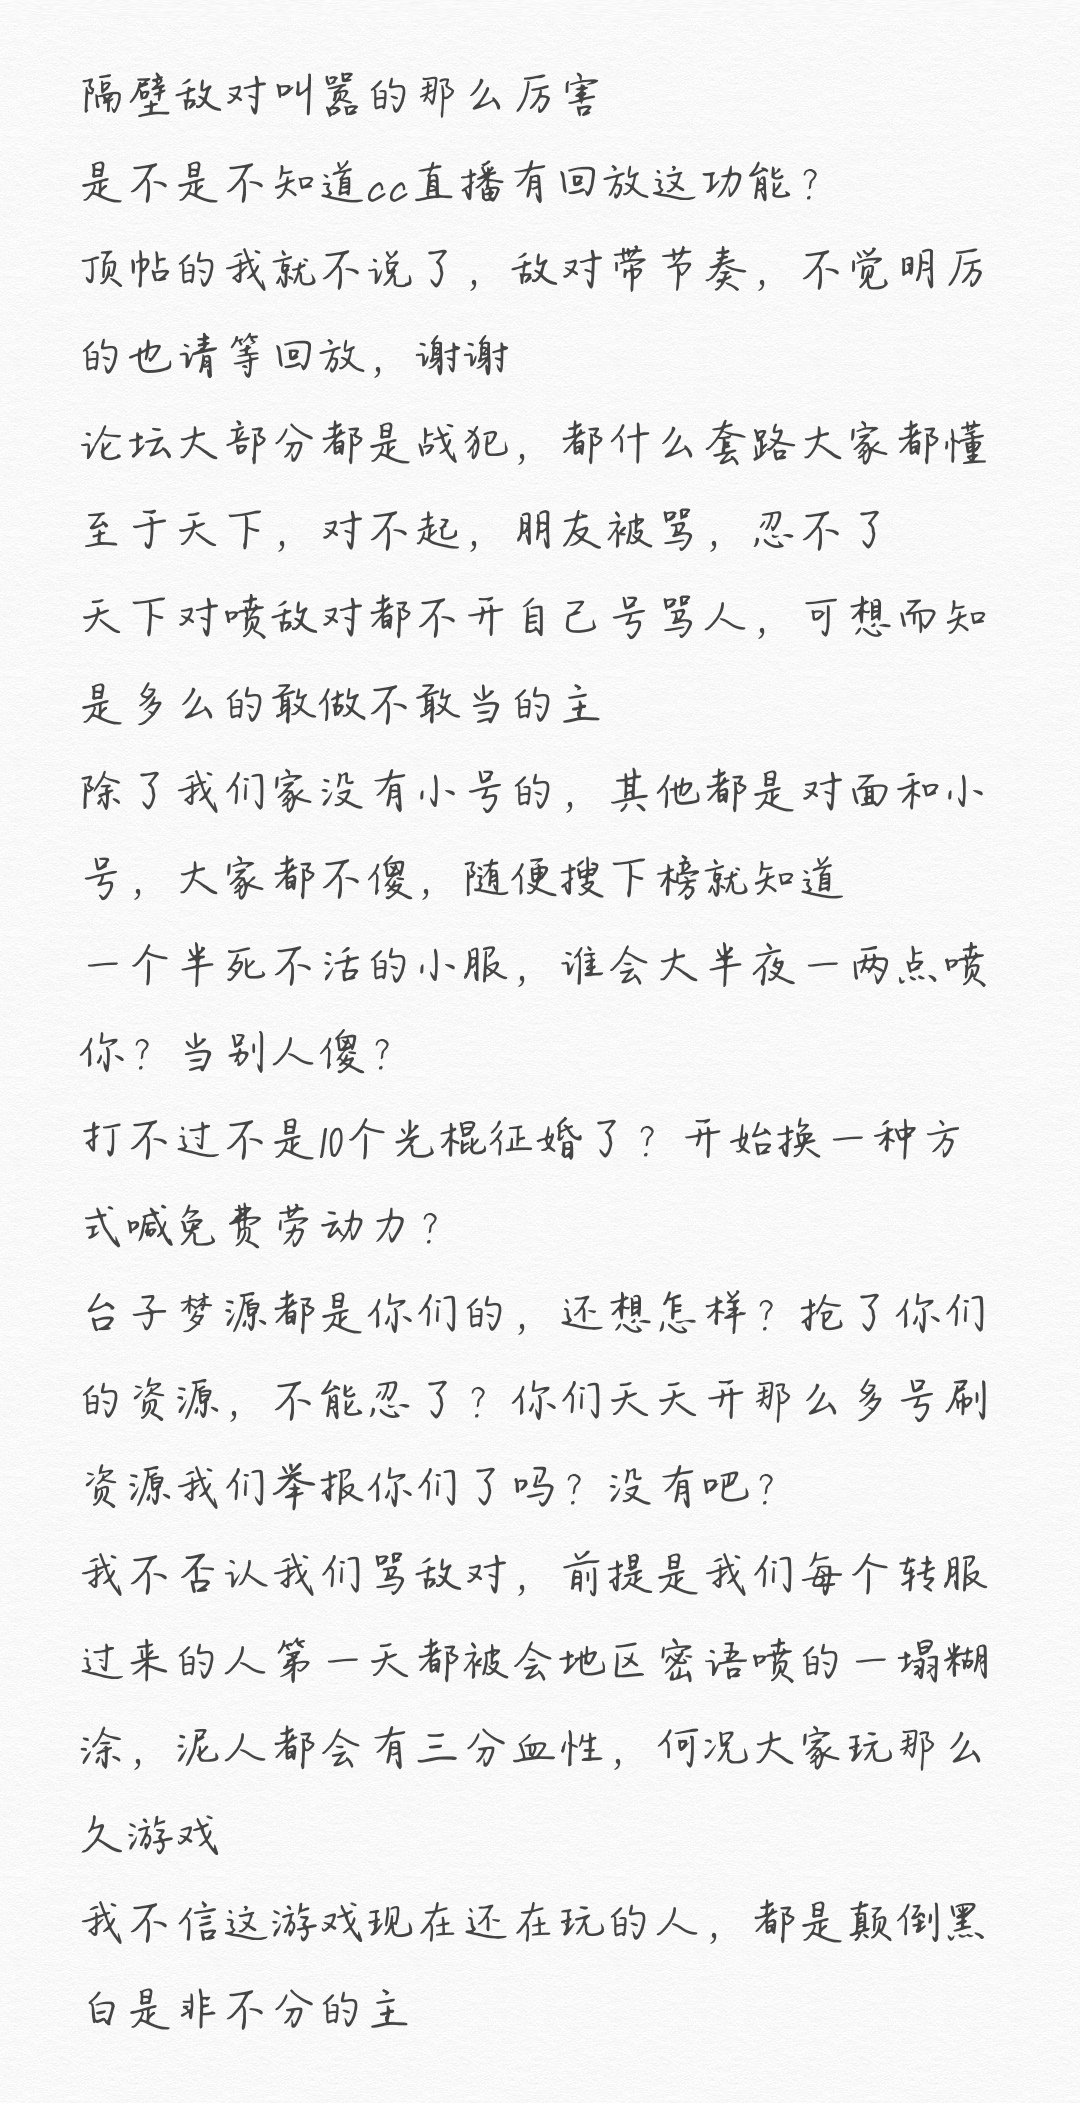 隔壁敌对叫嚣的那么厉害
是不是不知道cc直播有回放这功能？
顶帖的我就不说了，敌对带节奏，不觉明厉
的也请等回放，谢谢
论坛大部分都是战犯，都什么套路大家都懂
至于天下，对不起，朋友被骂，忍不了
天下对喷敌对都不开自己号骂人，可想而知
是多么的敢做不敢当的主
除了我们家没有小号的，其他都是对面和小
号，大家都不傻，随便搜下榜就知道
一个半死不活的小服，谁会大半夜一两点喷
你？当别人傻？
打不过不是10个光棍征婚了？开始换一种方
式喊免费劳动力？
台子梦源都是你们的，还想怎样？抢了你们
的资源，不能忍了？你们天天开那么多号刷
资源我们举报你们了吗？没有吧？
我不否认我们骂敌对，前提是我们每个转服
过来的人第一天都被会地区密语喷的一塌糊
涂，泥人都会有三分血性，何况大家玩那么
久游戏
我不信这游戏现在还在玩的人，都是颠倒黑
白是非不分的主